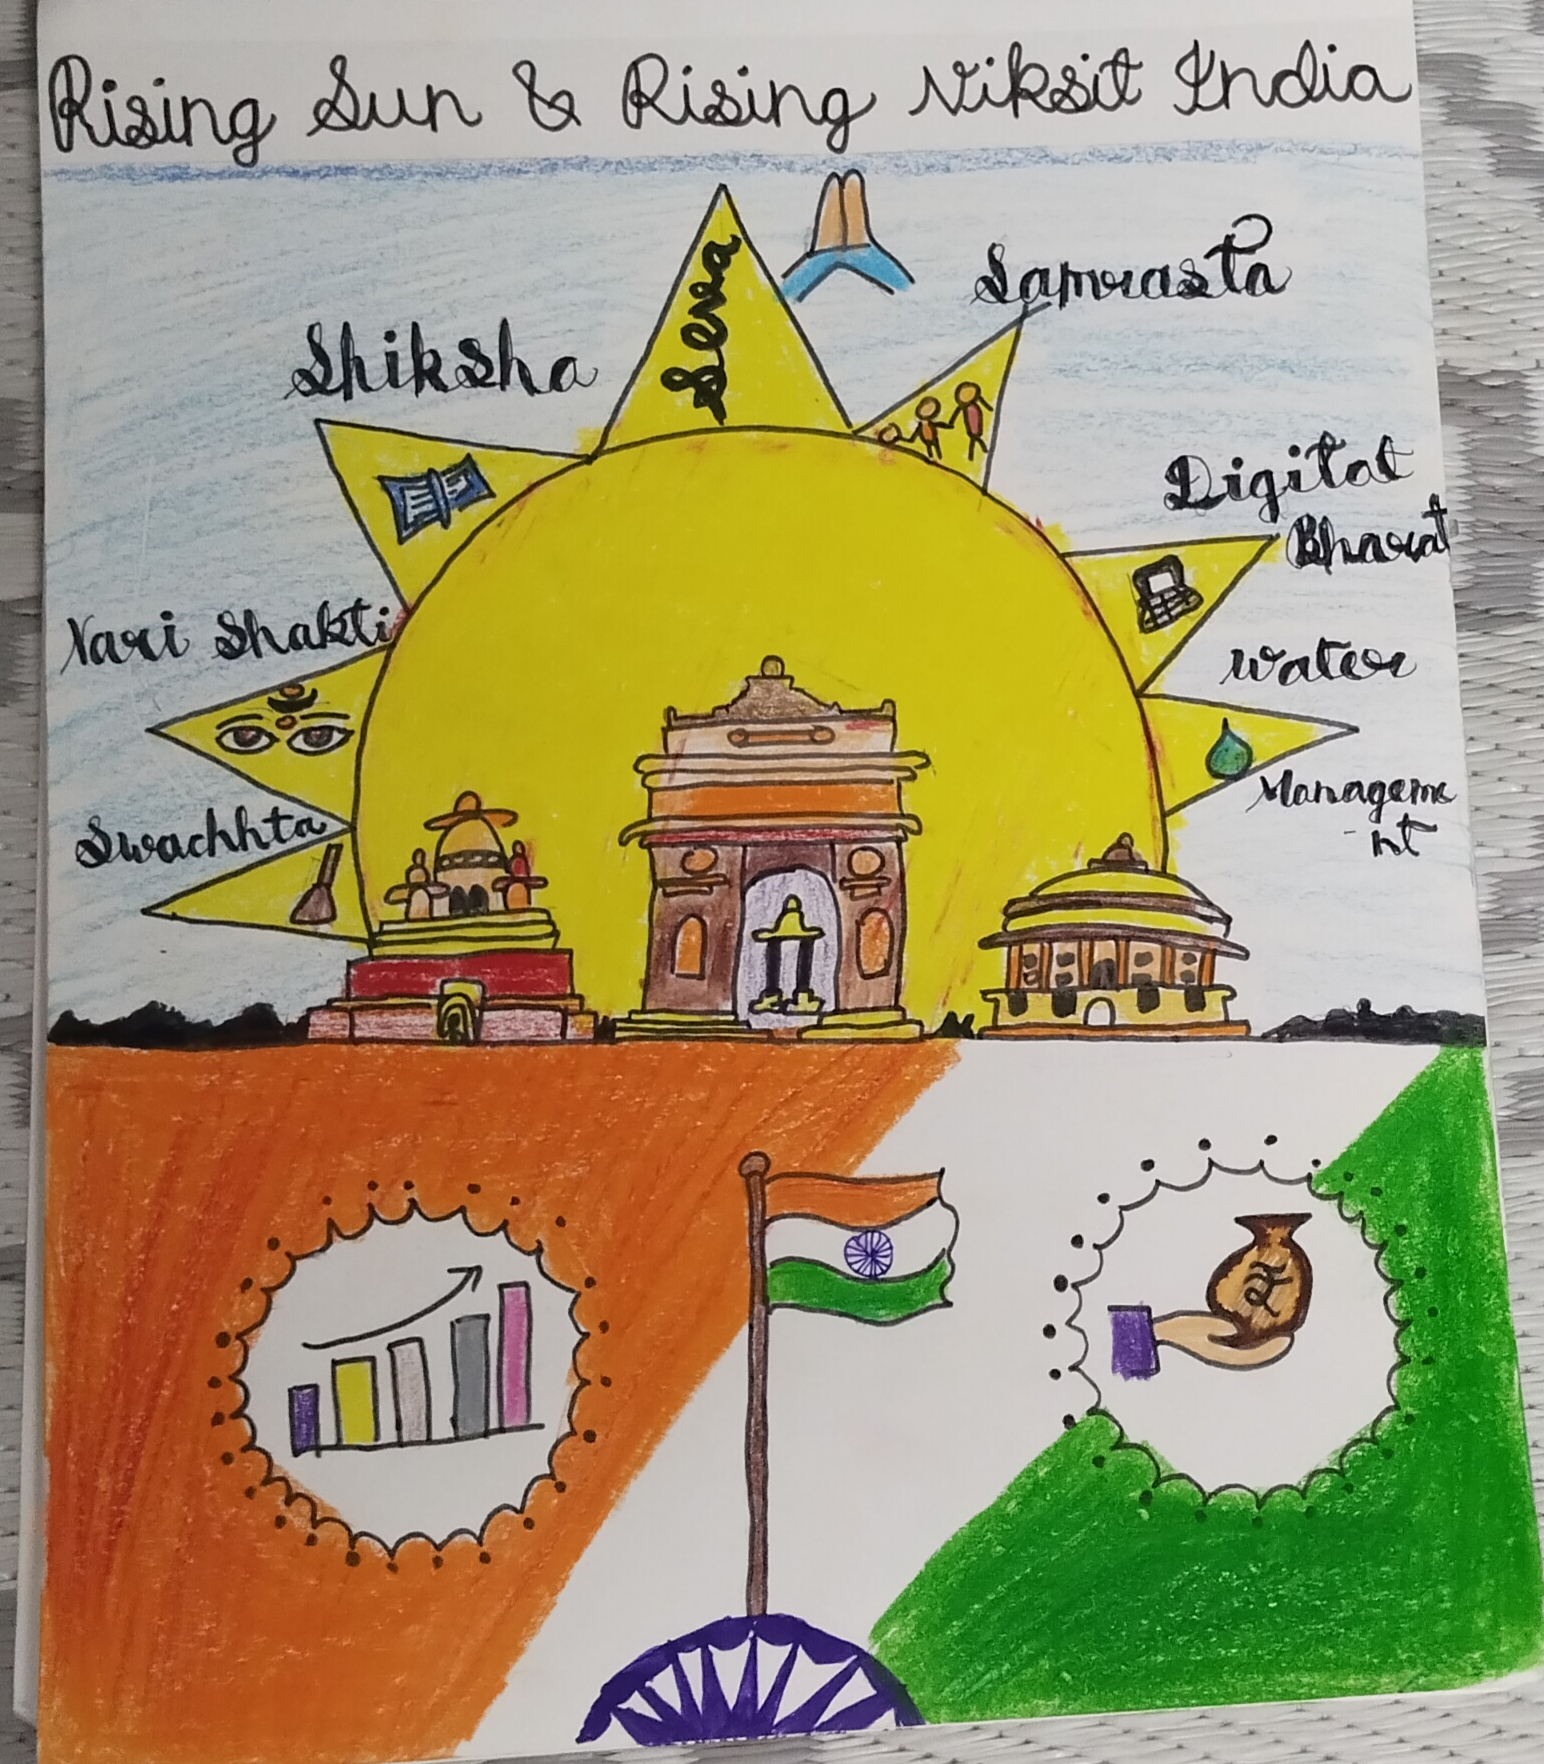 Rising Sun & Rising Viksit India
Seva
Samrasta
Shiksha
Digital
Bharat
Nari Shakti
Water
Manageme
nt
Swachhta
₹